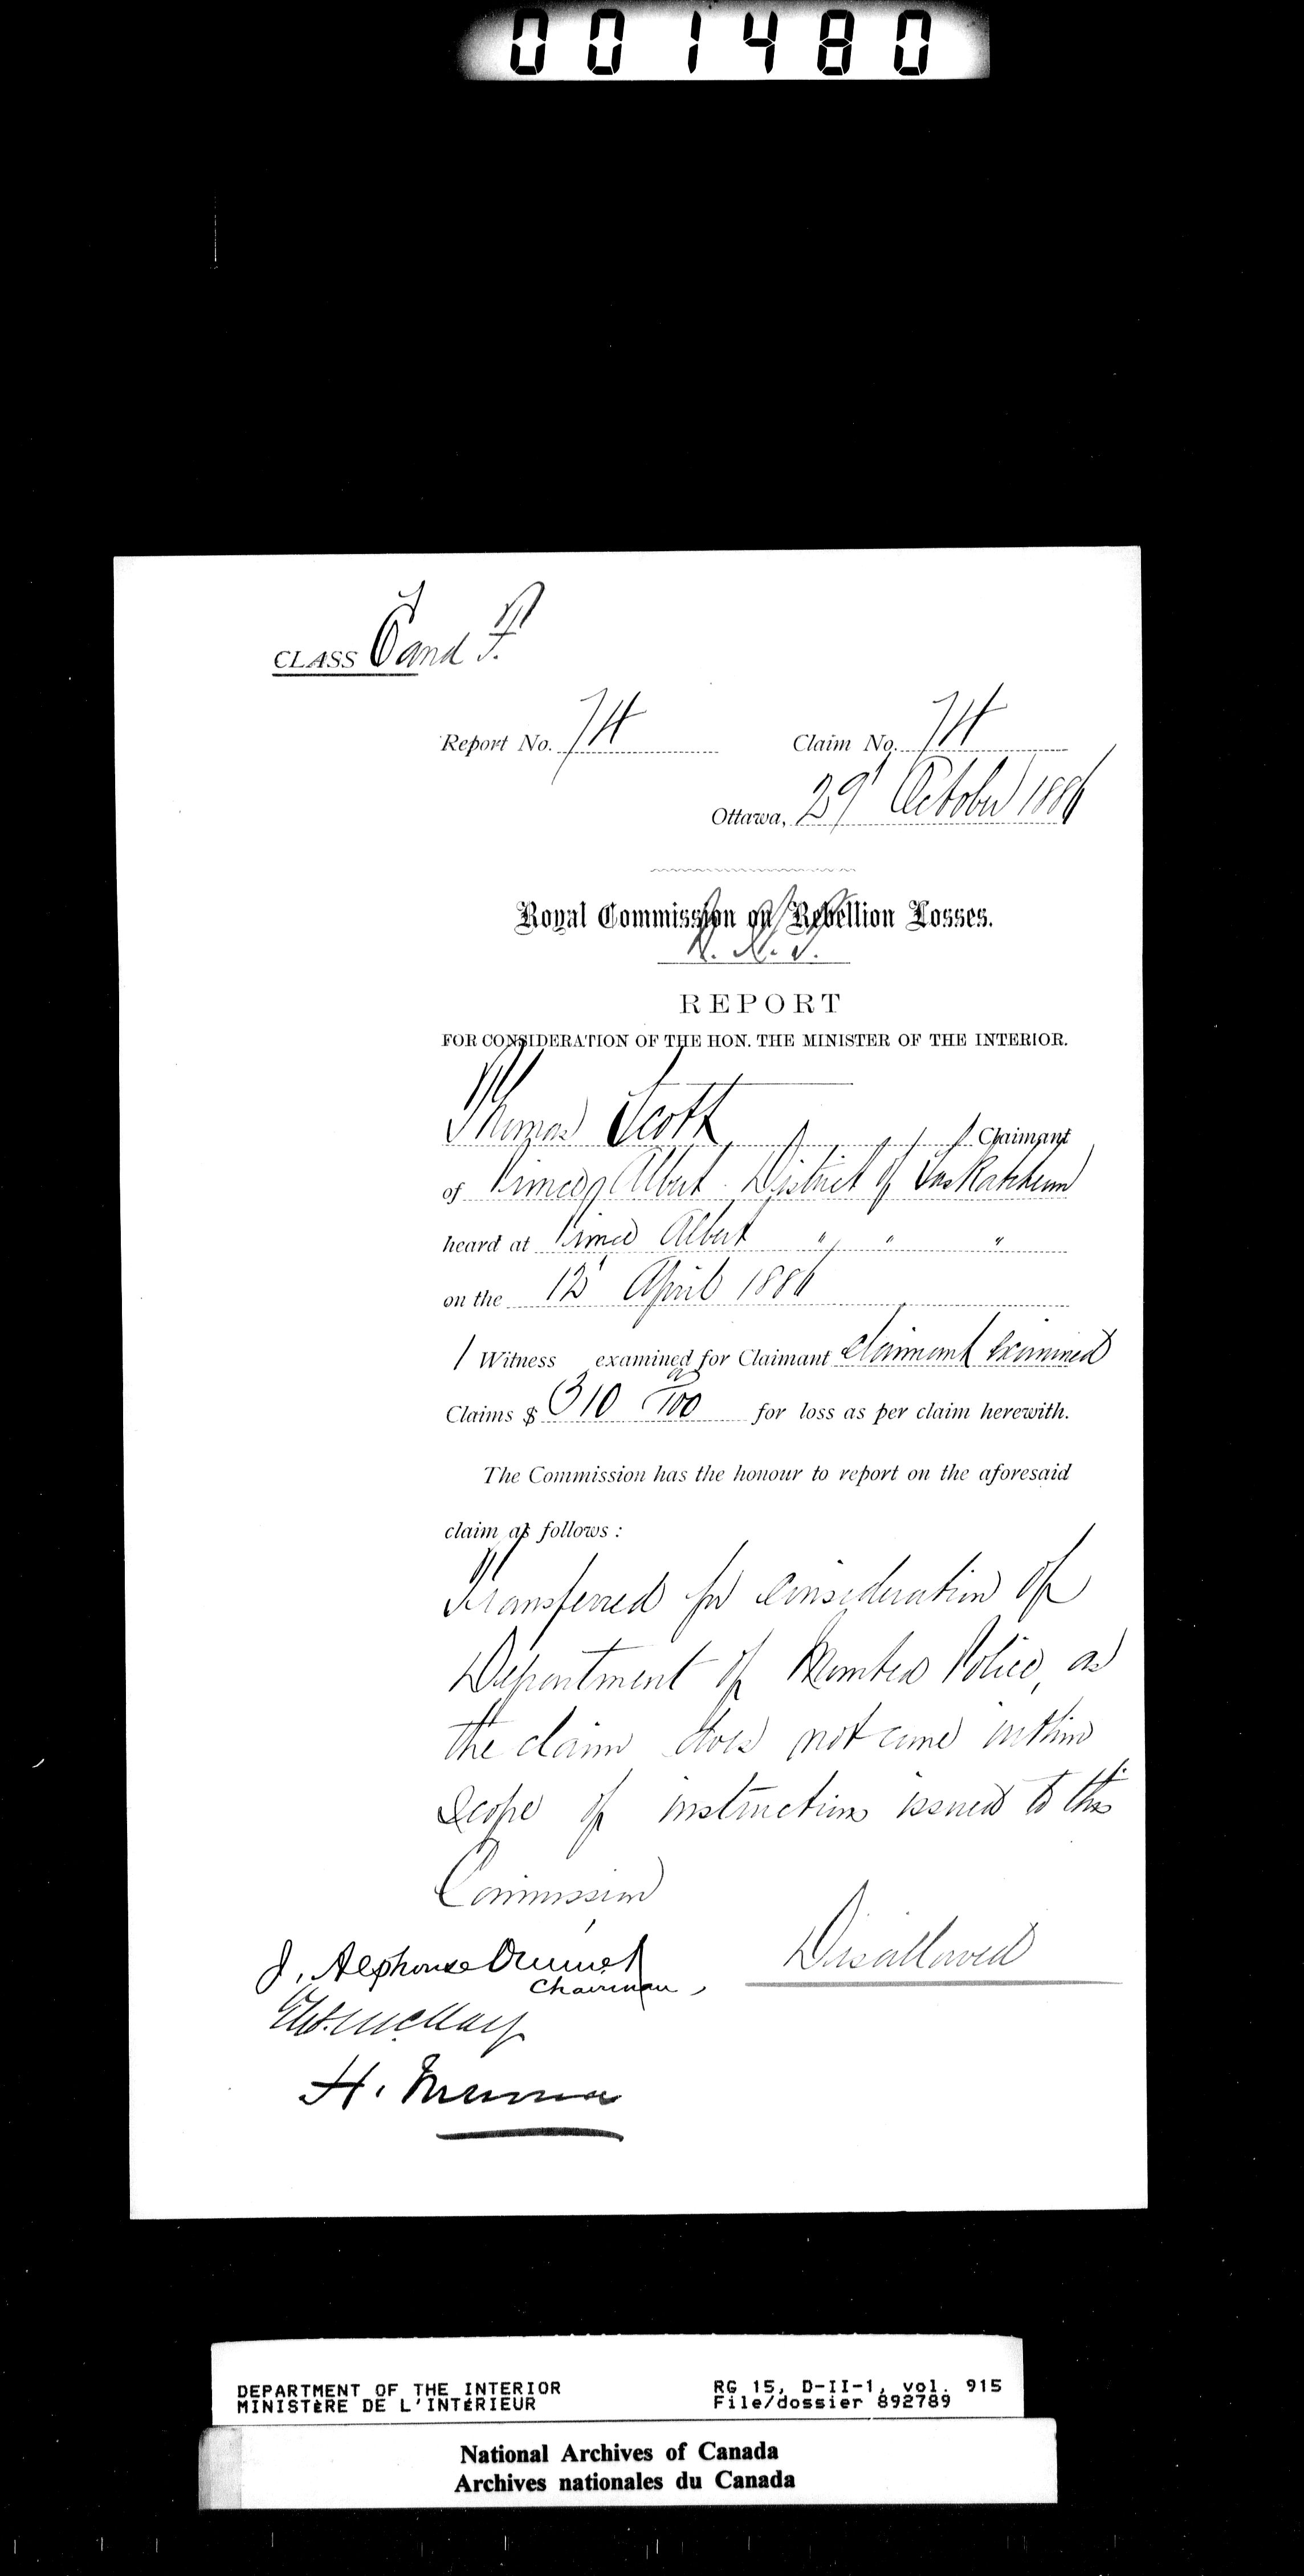 001480
CLASS C and F.
Report No. 74 Claim No. 74
Ottawa, 29' October 1886
Royal Commission on Rebellion Losses.
REPORT
FOR CONSIDERATION OF THE HON. THE MINISTER OF THE INTERIOR.
Thomas Scott Claimant
of Prince Albert District of Saskatchewan
heard at Prince Albert " " "
on the 12' April 1886
1 Witness examined for Claimant Claimant Examined
Claims $ 310 00/100 for loss as per claim herewith.
The Commission has the honour to report on the aforesaid
claim as follows :
Transferred for consideration of
Department of Mounted Police, as
the claim does not come within
scope of instructions issued to this
Commission
Disallowed
J. Alphonse Ouimet
Chairman,
H. Muma
DEPARTMENT OF THE INTERIOR RG 15, D-II-1, vol. 915
MINISTÈRE DE L'INTÉRIEUR File/dossier 892789
National Archives of Canada
Archives nationales du Canada